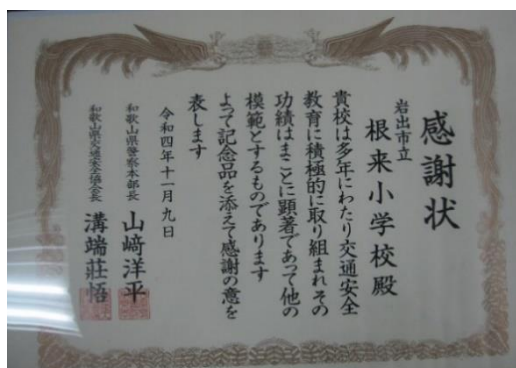 感謝状
岩出市立
根来小学校殿
貴校は多年にわたり交通安全
教育に積極的に取り組まれその
功績はまことに顕著であって他の
模範とするものであります
よって記念品を添えて感謝の意を
表します
令和四年十一月九日
和歌山県警察本部長
山﨑洋平
和歌山県交通安全協会会長
溝端莊悟